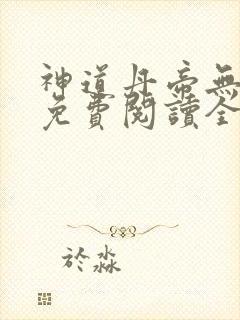 神道丹帝無
免費閱讀全
於淼